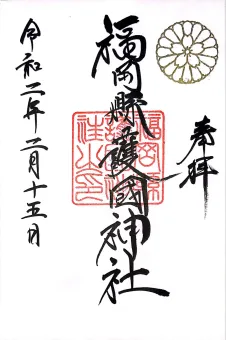 奉拝
福岡縣護國神社
令和二年二月十五日